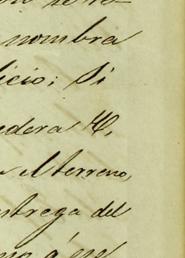 nombra
icio; Si
adera H,
el terreno,
ntrega del